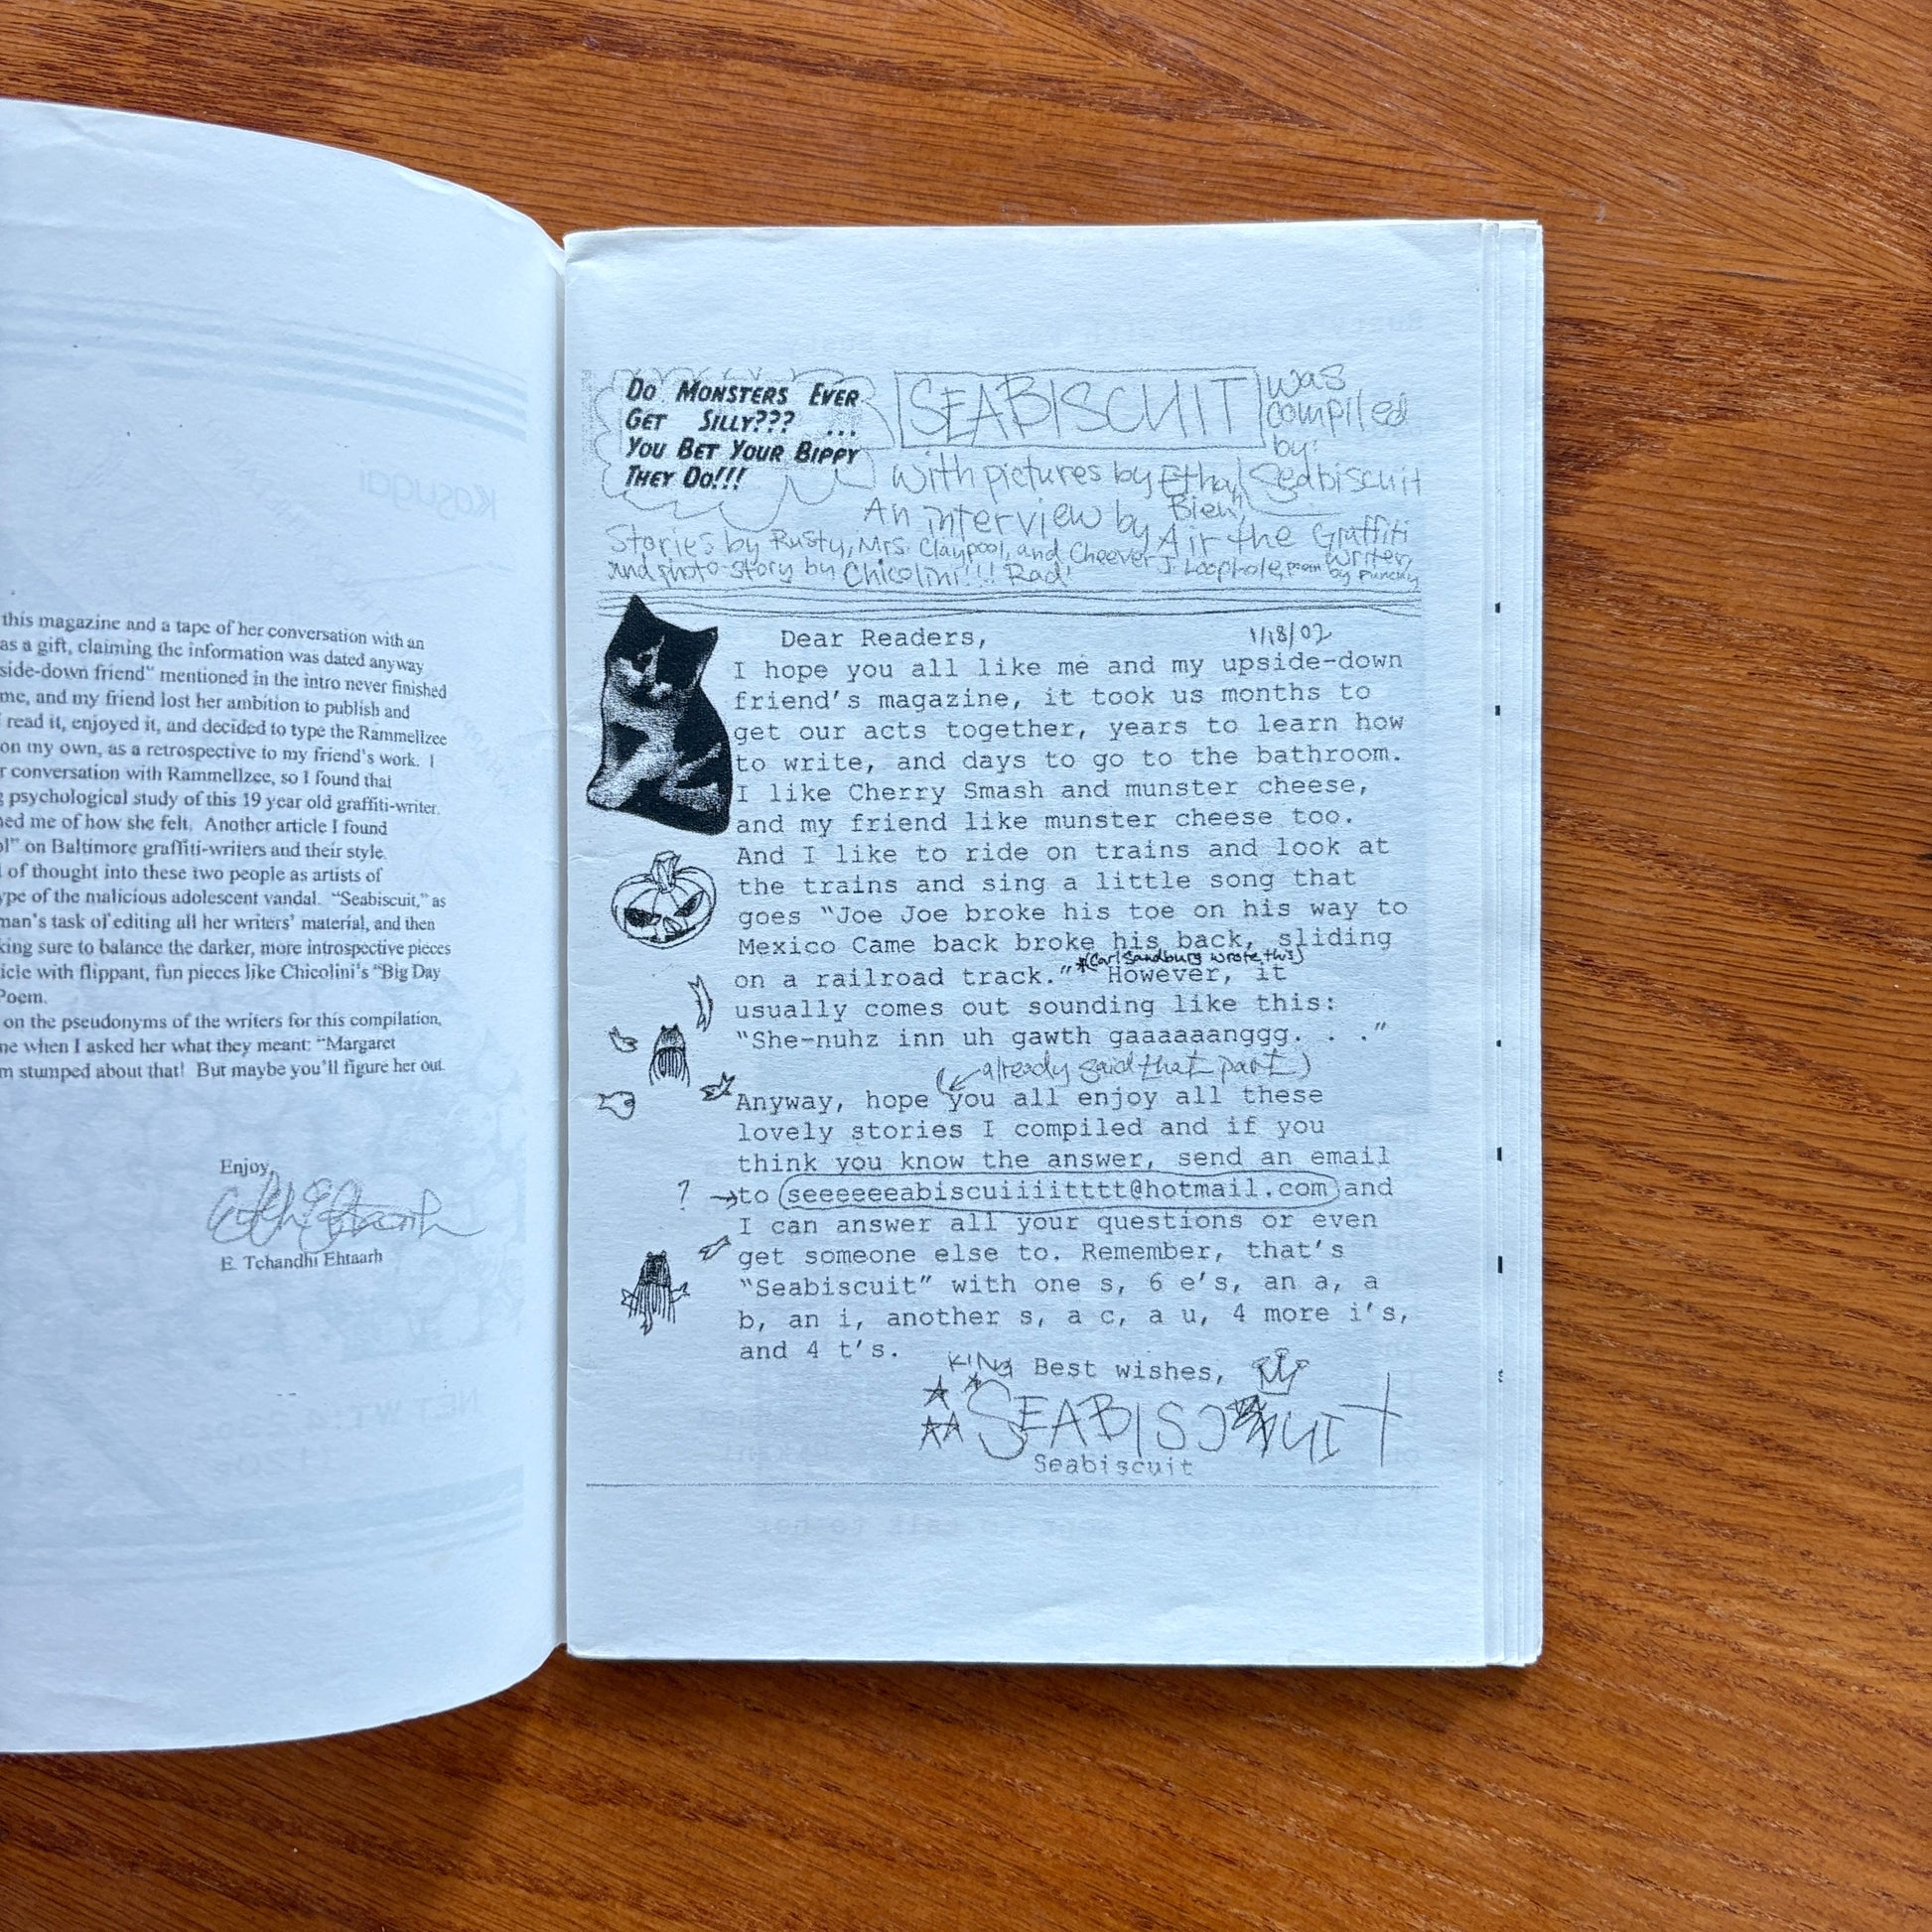 this magazine and a tape of her conversation with an
as a gift, claiming the information was dated anyway
side-down friend" mentioned in the intro never finished
me, and my friend lost her ambition to publish and
read it, enjoyed it, and decided to type the Rammellzee
on my own, as a retrospective to my friend's work. I
r conversation with Rammellzee, so I found that
g psychological study of this 19 year old graffiti-writer.
ned me of how she felt. Another article I found
ol" on Baltimore graffiti-writers and their style.
l of thought into these two people as artists of
ype of the malicious adolescent vandal. "Seabiscuit," as
man's task of editing all her writers' material, and then
king sure to balance the darker, more introspective pieces
icle with flippant, fun pieces like Chicolini's "Big Day
Poem.
on the pseudonyms of the writers for this compilation,
me when I asked her what they meant: "Margaret
m stumped about that! But maybe you'll figure her out.
Enjoy,
E. Tchandhi Ehtaarh
DO MONSTERS EVER
GET SILLY??? ...
YOU BET YOUR BIPPY
THEY DO!!!
SEABISCUIT was
compiled
by:
Seabiscuit
with pictures by Ethal
Bien,
An interview by Air the Graffiti
writer,
Stories by Rusty, Mrs. Claypool, and Cheever J. Loophole, poem by Punchy
and photo-story by Chicolini!!! Rad!
Dear Readers, 1/18/02
I hope you all like me and my upside-down
friend's magazine, it took us months to
get our acts together, years to learn how
to write, and days to go to the bathroom.
I like Cherry Smash and munster cheese,
and my friend like munster cheese too.
And I like to ride on trains and look at
the trains and sing a little song that
goes "Joe Joe broke his toe on his way to
Mexico Came back broke his back, sliding
*(Carl Sandburg wrote this)
on a railroad track." However, it
usually comes out sounding like this:
"She-nuhz inn uh gawth gaaaaaanggg. . ."
(already said that part)
Anyway, hope you all enjoy all these
lovely stories I compiled and if you
think you know the answer, send an email
? →to seeeeeeabiscuiiiitttt@hotmail.com and
I can answer all your questions or even
get someone else to. Remember, that's
"Seabiscuit" with one s, 6 e's, an a, a
b, an i, another s, a c, a u, 4 more i's,
and 4 t's.
KING Best wishes,
SEABISCUIT
Seabiscuit